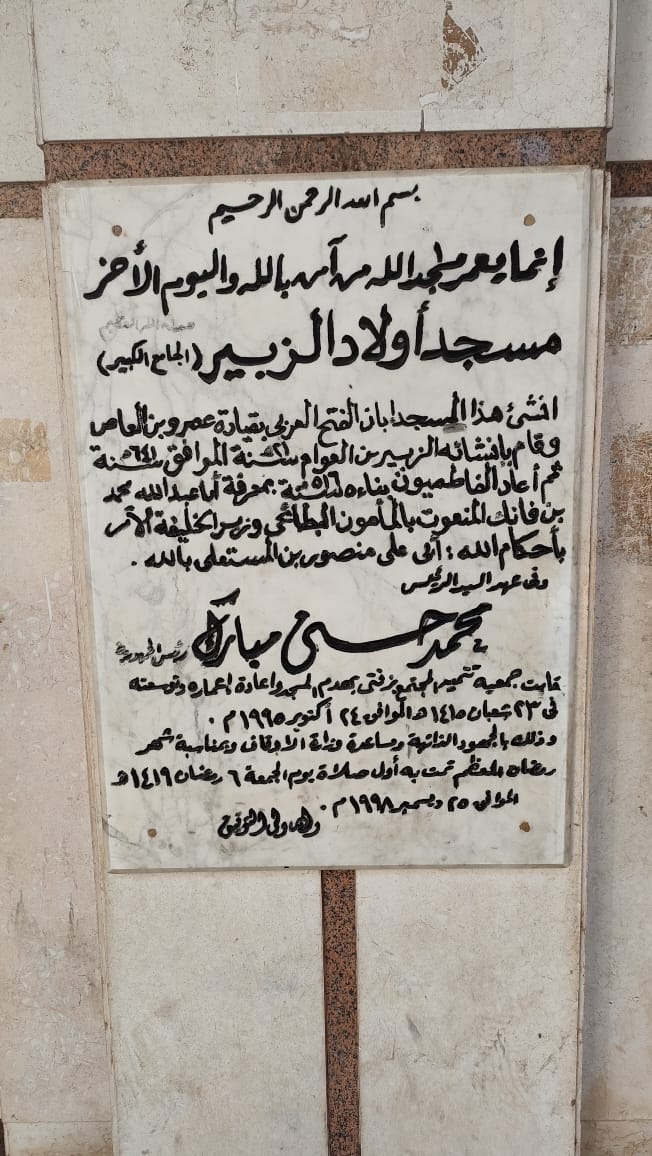 بسم الله الرحمن الرحيم
إنما يعمر مساجد الله من آمن بالله واليوم الأخر
صدق الله العظيم
مسجد أولاد الزبير (الجامع الكبير)
انشئ هذا المسجد إبان الفتح العربى بقيادة عمرو بن العاص
وقام بإنشائه الزبير بن العوام سنة ٢١ الموافق سنة ٦٤١
ثم أعاد الفاطميون بناءه سنة بمعرفة أبا عبد الله محمد
بن فاتك المنعوت بالمأمون البطائحى وزير الخليفة الآمر
بأحكام الله : أبى على منصور بن المستعلى بالله .
وفى عهد السيد الرئيس
محمد حسنى مبارك رئيس الجمهورية
قامت جمعية تنمية المجتمع بزفتى بهدم المسجد واعادة إعماره وتوسعته
فى ٢٣ شعبان ١٤١٥ هـ الموافق ٢٤ أكتوبر ١٩٩٥ م .
وذلك بالجهود الذاتية ومساعدة وزارة الأوقاف وبمناسبة شهر
رمضان المعظم تمت به أول صلاة يوم الجمعة ٦ رمضان ١٤١٩ هـ
الموافق ٢٥ ديسمبر ١٩٩٨ م .
والله ولى التوفيق